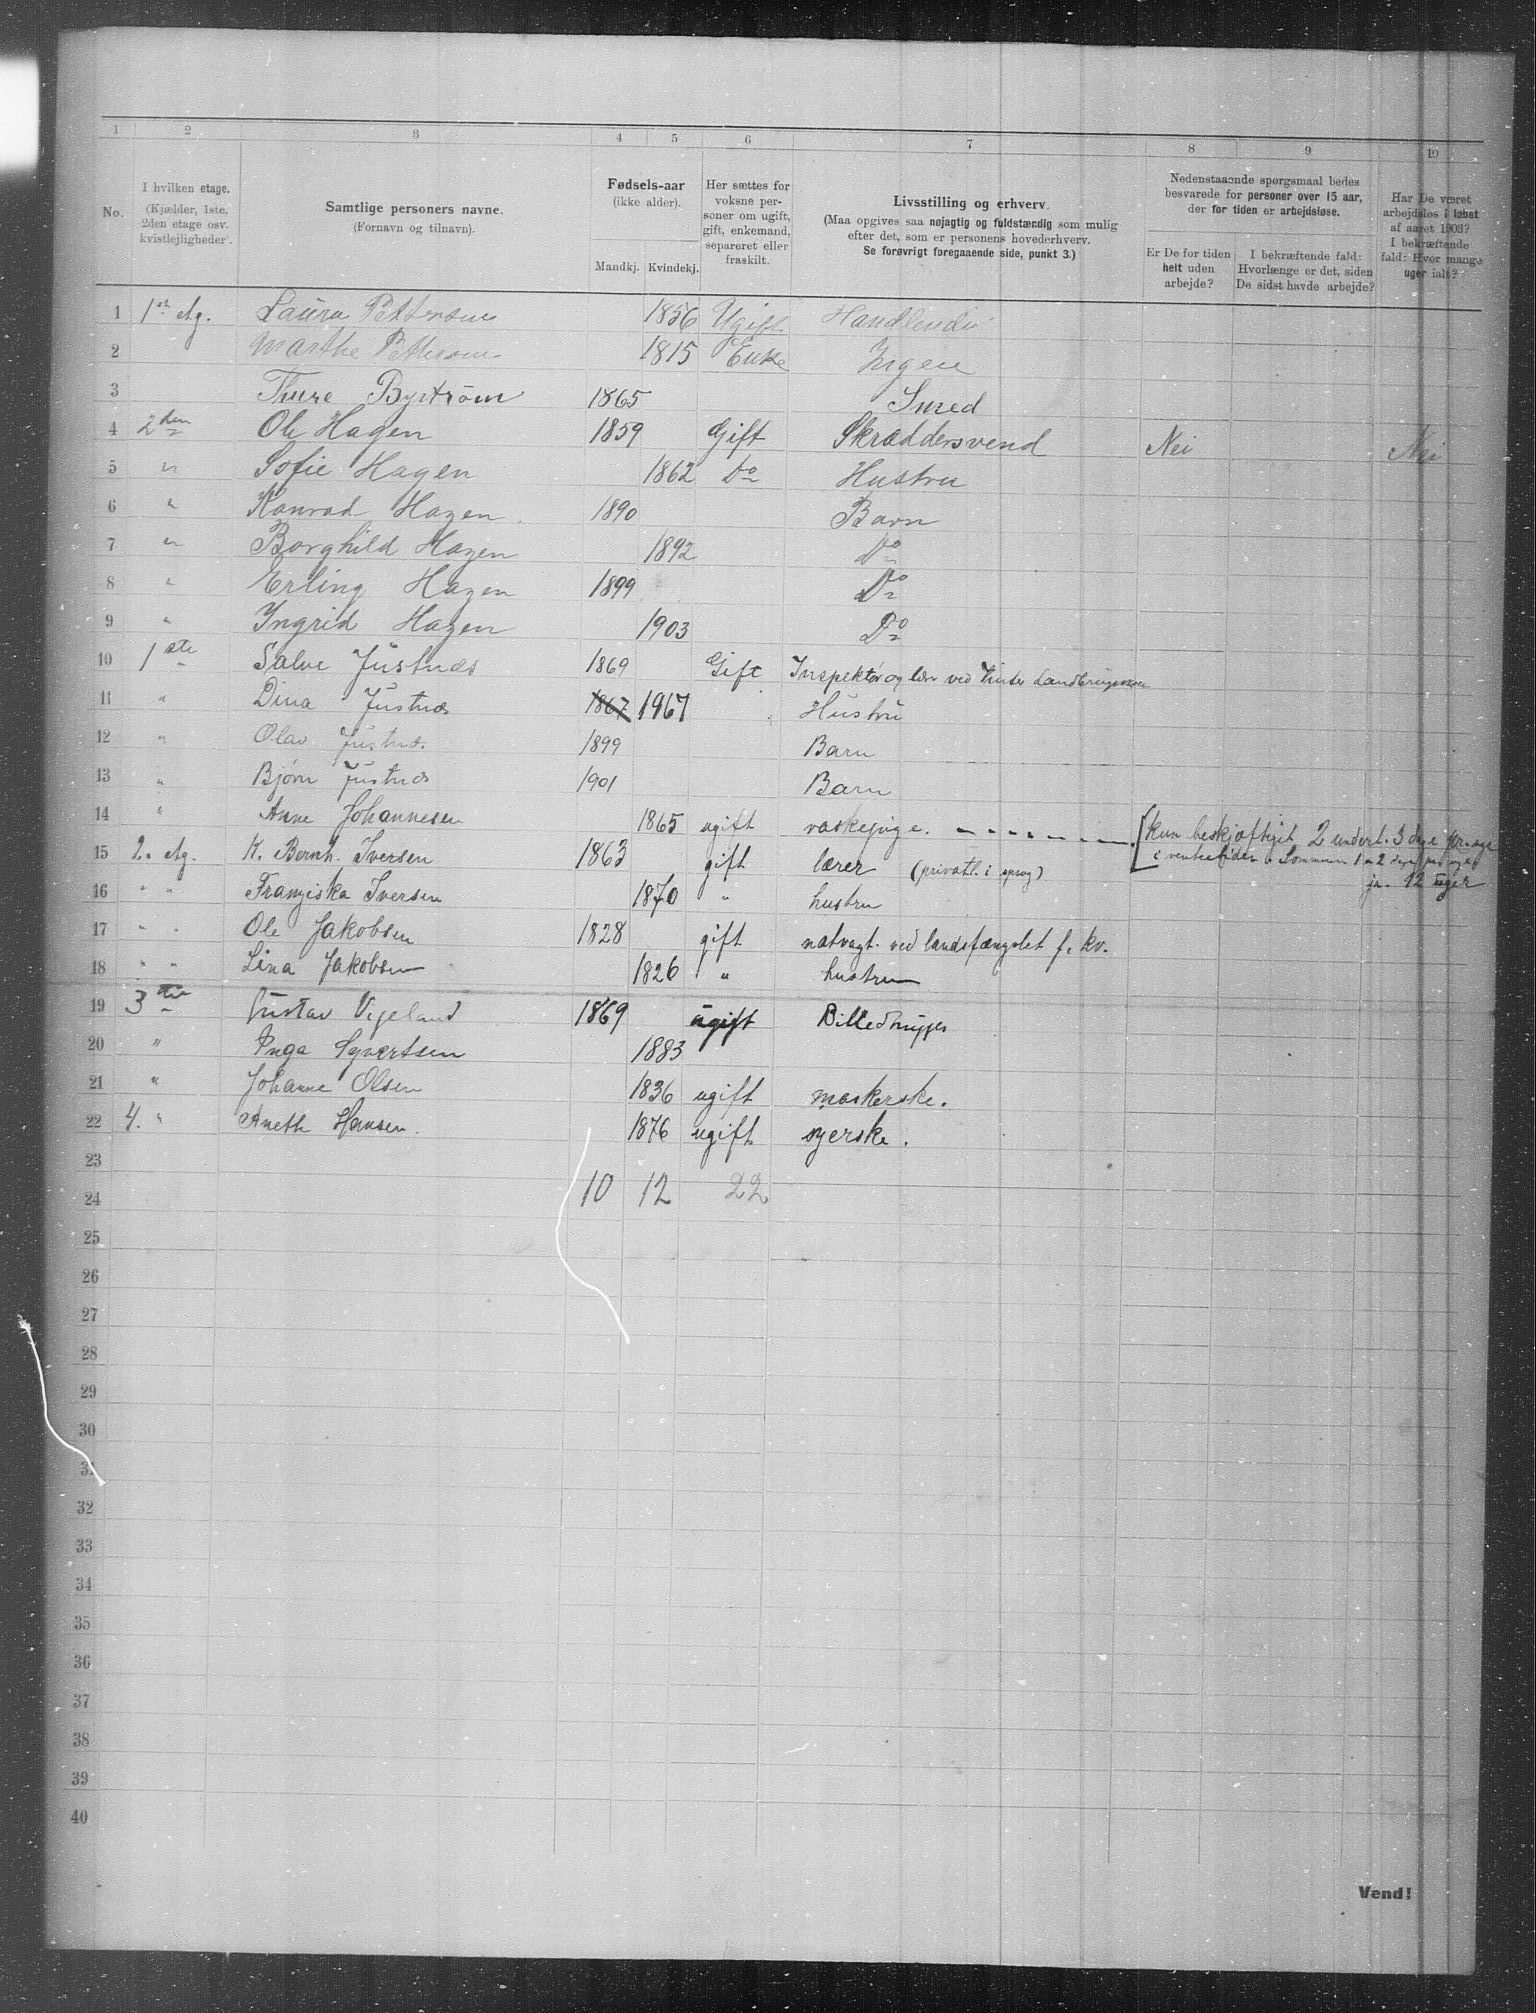 1 2 3 4 5 6 7 8 9 10
No. I hvilken etage. (Kjælder, 1ste, 2den etage osv. kvistlejligheder). Samtlige personers navne. (Fornavn og tilnavn). Fødsels-aar (ikke alder). Mandkj. Kvindekj. Her sættes for voksne personer om ugift, gift, enkemand, separeret eller fraskilt. Livsstilling og erhverv. (Maa opgives saa nøjagtig og fuldstændig som mulig efter det, som er personens hovederhverv. Se forøvrigt foregaaende side, punkt 3.) Nedenstaaende spørgsmaal bedes besvarede for personer over 15 aar, der for tiden er arbejdsløse. Er De for tiden helt uden arbejde? I bekræftende fald: Hvorlænge er det, siden De sidst havde arbejde? Har De været arbejdsløs i løbet af aaret 1903? I bekræftende fald: Hvor mange uger ialt?
1 1ste Etg. Laura Pettersen 1856 Ugift Handlende
2 Marthe Pettersen 1815 Enke Ingen
3 Thure Byström 1865
4 2den Ole Hagen 1859 Gift Skræddersvend Nei Nei
5 " Sofie Hagen 1862 Do Hustru
6 " Konrad Hagen. 1890 Barn
7 " Borghild Hagen 1892 Do
8 " Erling Hagen 1899 Do
9 " Ingrid Hagen 1903 Do
10 1ste Salve Justnæs 1869 Gift Inspektør og lærer ved
11 " Dina Justnæs 1867 1967 Hustru
12 " Olav Justnæs 1899 Barn
13 " Bjørn Justnæs 1901 Barn
14 " Anne Johannesen 1865 ugift vaskepige. kun beskjæftiget 2 undert. 3 dage pr. uge
15 2. Etg. K. Bernh. Iversen 1863 gift lærer (privatl. i sprog) i Sommeren 1 a 2 dage
16 " " Franziska Iversen 1870 " hustru ja. 12 uger
17 " " Ole Jakobsen 1828 gift natvagt. ved landsfængslet f. kv.
18 " " Lina Jakobsen 1826 " hustru
19 3die Gustav Vigeland 1869 ugift Billedhugger
20 " Inga Syvertsen 1883
21 " Johanne Olsen 1836 ugift
22 4. " Aneth Hansen. 1876 ugift syerske.
23
24 10 12 22
25
26
27
28
29
30
3
32
33
34
35
36
37
38
39
40
Vend!